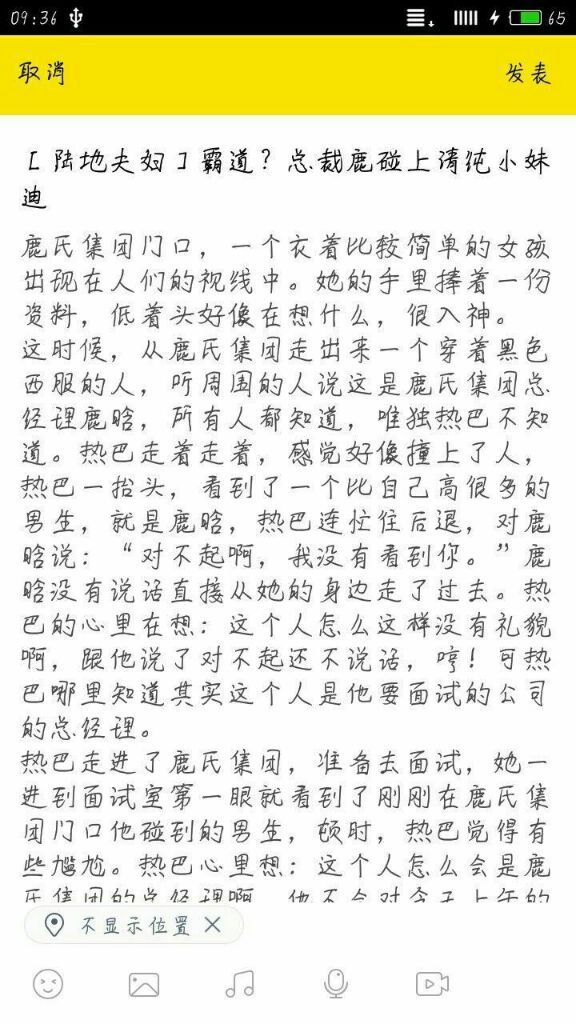 09:36
65
取消
发表
[陆地夫妇]霸道?总裁鹿碰上清纯小妹
迪
鹿氏集团门口，一个衣着比较简单的女孩
出现在人们的视线中。她的手里捧着一份
资料，低着头好像在想什么，很入神。
这时候，从鹿氏集团走出来一个穿着黑色
西服的人，听周围的人说这是鹿氏集团总
经理鹿晗，所有人都知道，唯独热巴不知
道。热巴走着走着，感觉好像撞上了人，
热巴一抬头，看到了一个比自己高很多的
男生，就是鹿晗，热巴连忙往后退，对鹿
晗说：“对不起啊，我没有看到你。”鹿
晗没有说话直接从她的身边走了过去。热
巴的心里在想：这个人怎么这样没有礼貌
啊，跟他说了对不起还不说话，哼！可热
巴哪里知道其实这个人是他要面试的公司
的总经理。
热巴走进了鹿氏集团，准备去面试，她一
进到面试室第一眼就看到了刚刚在鹿氏集
团门口他碰到的男生，顿时，热巴觉得有
些尴尬。热巴心里想：这个人怎么会是鹿
氏集团的总经理啊，他不会对今天上午的
不显示位置